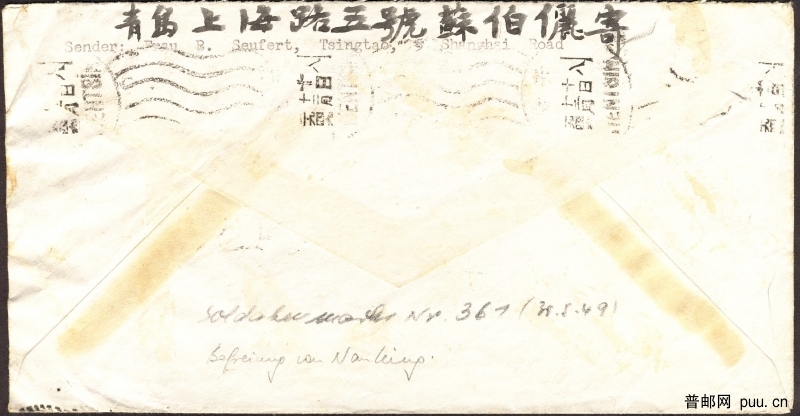 青島上海路五號蘇伯儷寄
Sender: Frau R. Seufert, Tsingtao, 5 Shanghai Road
TIENTSIN
Soldatenmarke Nr. 361 (28.8.49)
Befreiung von Nanking.
普邮网 puu.cn